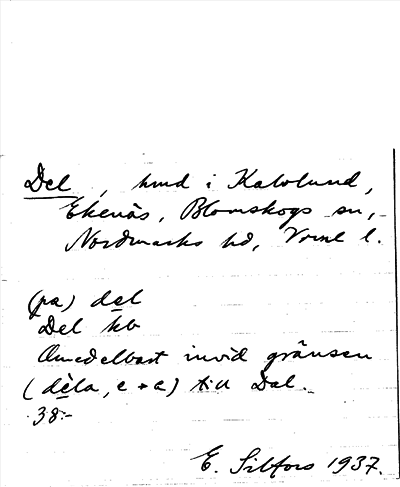 Del, hmd i Kalvlund,
Ekenäs, Blomskogs sn,
Nordmarks hd, Vrml l.
(pa) del
Del kb
Omedelbart invid gränsen
(dela, e + a) till Dal.
38:-
E. Silfors 1937.